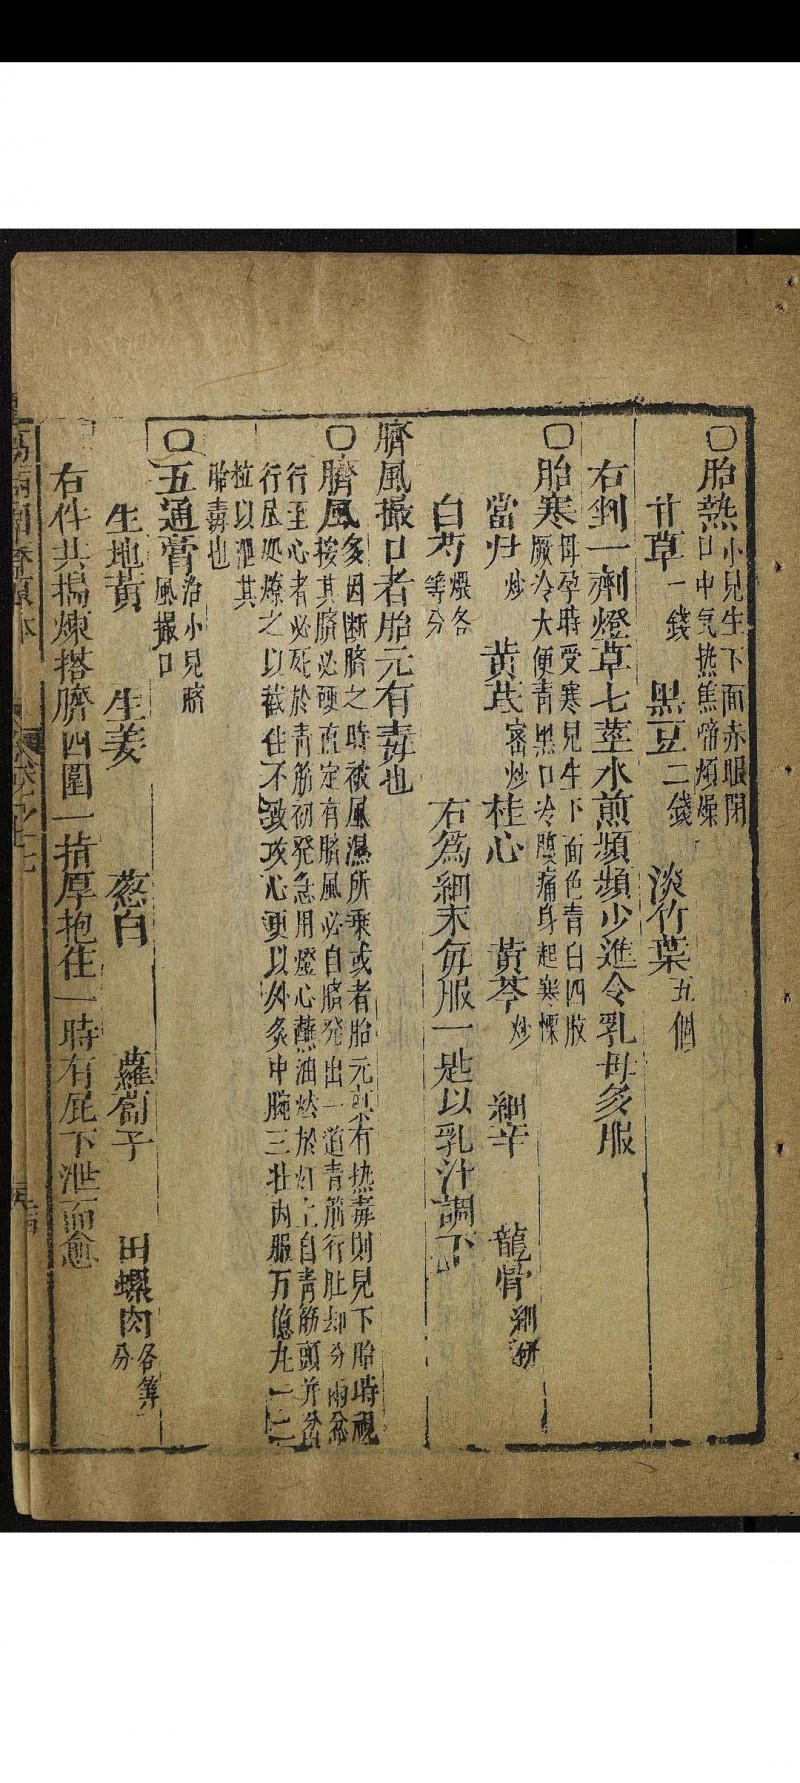 ○胎熱小兒生下面赤眼閉
口中气热焦啼煩燥
甘草一錢 黑豆二錢 淡竹葉五個
右剉一劑燈草七莖水煎頻頻少進令乳母多服
○胎寒母孕時受寒兒生下面色青白四肢
厥冷大便青黑口冷腹痛身起寒慄
當归炒 黄芪蜜炒 桂心 黄芩炒 細辛 龍骨細研
白芍煨各
等分 右為細末每服一匙以乳汁調下
臍風撮口者胎元有毒也
○臍風多因断臍之時被風濕所乗或者胎元禀有热毒則見下胎時視
其臍必硬直定有臍風必自臍発出一道青筋行肚却分兩岔
行至心者必死於青筋初発急用燈心蘸油燃於灯上自青筋頭并岔
行尽処燎之以截住不致攻心更以外灸中腕三壯内服万億丸一二
粒以泄其
胎毒也
○五通膏治小兒臍
風撮口
生地黄 生姜 葱白 蘿蔔子 田螺肉各等
分
右件共搗煉搭臍四圍一指厚抱住一時有屁下泄而愈